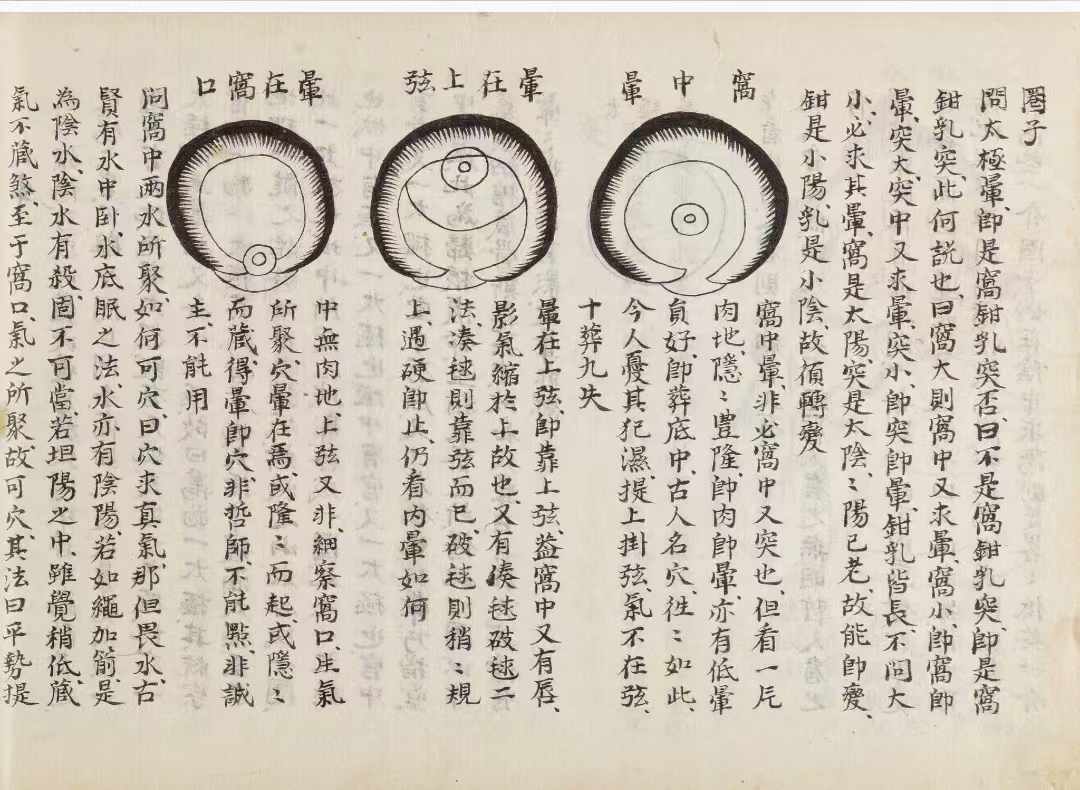 圈子
問太極暈、卽是窩鉗乳突否、曰不是窩鉗乳突、卽是窩
鉗乳突、此何説也、曰窩大則窩中又求暈、窩小、卽窩卽
暈、突大、突中又求暈、突小、卽突卽暈、鉗乳皆長、不問大
小、必求其暈、窩是太陽、突是太陰、〻陽已老、故能卽變、
鉗是小陽、乳是小陰、故須轉變
窩中暈
窩中暈、非必窩中又突也、但看一凥
肉地、隱〻豐隆、卽肉卽暈、亦有低暈
負好、卽葬底中、古人名穴、徃〻如此、
今人憂其犯濕、提上掛弦、氣不在弦、
十葬九失
暈在上弦
暈在上弦、卽靠上弦、葢窩中又有唇、
影氣縮於上故也、又有湊毬破毬二
法、湊毬則靠弦而已、破毬則稍〻規
上、遇硬卽止、仍看内暈如何
暈在窩口
中無肉地、上弦又非、細察窩口、生氣
所聚、穴暈在焉、或隆〻而起、或隱〻
而藏、得暈卽穴、非哲師、不能點、非誠
主、不能用
問窩中兩水所聚、如何可穴、曰穴求真氣、那但畏水、古
賢有水中卧、水底眠之法、水亦有陰陽、若如繩加箭、是
為陰水、陰水有殺、固不可當、若坦陽之中、雖覺稍低、藏
氣不藏煞、至于窩口、氣之所聚、故可穴、其法曰平勢提